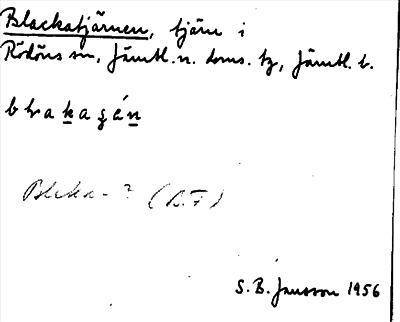 Blackatjärnen, tjärn i
Rödöns sn, Jämtl. n. doms. tg, Jämtl. l.
Bleka-? (R.F)
S. B. Jansson 1956